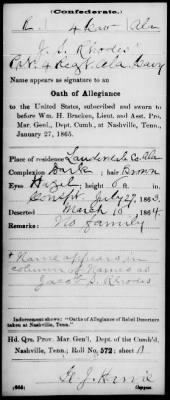 (Confederate.)
R. 4 Cav. Ala
J. S. Rhodes
Pvt. 4 Regt Ala. Cavy
Name appears as signature to an
Oath of Allegiance
to the United States, subscribed and sworn to
before Wm. H. Bracken, Lieut. and Asst. Pro.
Mar. Genl., Dept. Cumb., at Nashville, Tenn.,
January 27, 1865.
Place of residence Lauderdale Co. Ala
Complexion Dark; hair Brown
Eyes Hazel, height 6 in
Conscript July 27, 1863.
Deserted March 10 1864
Remarks: No family
*Name appears in
column of Names as
Jacob S. Rhodes
Indorsement shows: "Oaths of Allegiance of Rebel Deserters
taken at Nashville, Tenn."
Hd. Qrs. Prov. Mar. Gen'l, Dept. of the Cumb'd,
Nashville, Tenn.; Roll No. 572; sheet
Copyist.